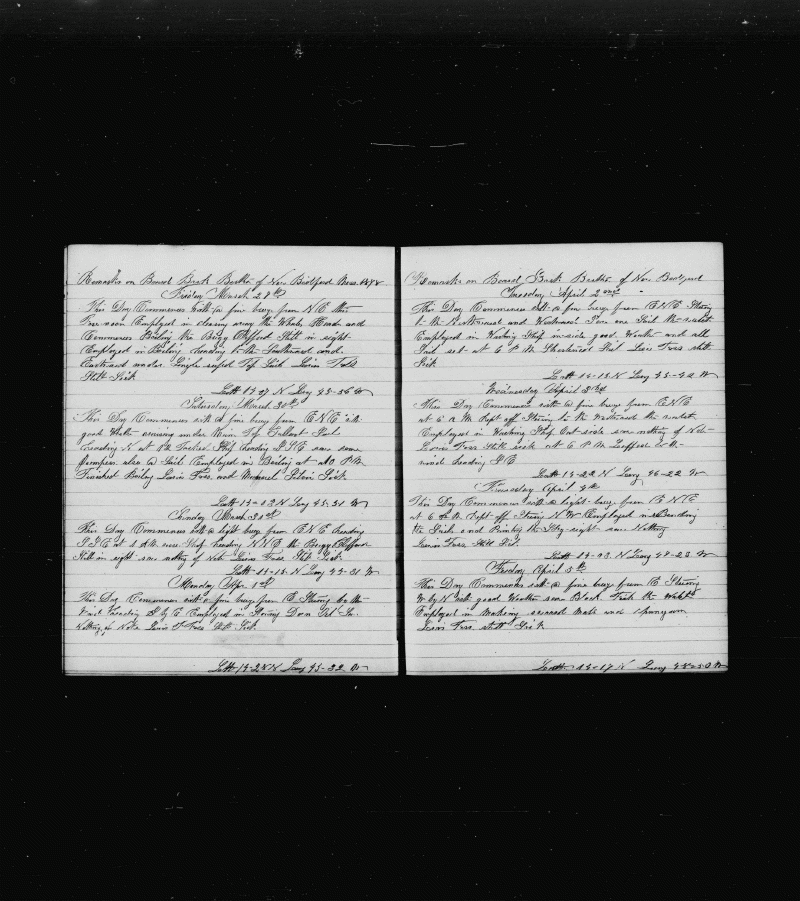 Remarks on Board Bark Bertha of New Bedford Mass. 1878
Friday March 29th
This Day Commences with a fine breeze from N E this
Fore noon Employed in clearing away the Whales Head and
Commences Boiling the Brigg Clifford Still in sight
Employed in Boiling heading to the Southward and
Eastward under Single reefed Top Sails Lewis
Still Sick
Latt 13-07 N Long 45-36 W
Saturday March 30th
This Day Commences with a fine breeze from E N E with
good Weather under Main Top Gallant Sail
heading N at Ship heading S S E saw some
also a Sail Employed in Boiling at 10 P M
Finished Boiling Lewis Fras and Manuel Silvia Sick
Latt 13-03 N Long 45-31 W
Sunday March 31st
This Day Commences with a light breeze from E N E heading
S S E at 1 A M Ship heading N N E the Brigg Clifford
Still in sight saw nothing of Note Lewis Fras Still Sick
Latt 13-15 N Long 45-31 W
Monday Apr. 1st
This Day Commences with a fine breeze from E Steering to the
heading S by E Employed in Stowing Down Oil
Nothing of Note Lewis Fras Still Sick
Latt 13-28 N Long 45-32 W
Remarks on Board Bark Bertha of New Bedford
Tuesday April 2nd
This Day Commences with a fine breeze from E N E Steering
to the Northward and Westward Saw one Sail the watch
Employed in Washing Ship in-side good Weather and all
Sail set at 6 P M Shortened Sail Lewis Fras still
Sick
Latt 14-13 N Long 45-42 W
Wednesday April 3rd
This Day Commences with a fine breeze from E N E
at 6 A M Kept off Steering to the Westward the watch
Employed in Washing Ship Out-side saw nothing of Note
Lewis Fras Still sick at 6 P M Luffed to the
wind heading S E
Latt 13-22 N Long 46-22 W
Thursday April 4th
This Day Commences with a light breeze from E N E
at 6 A M Kept off Steering N W Employed in Bending
Sails and Painting the Ship saw Nothing
Lewis Fras Still Sick
Latt 14-03 N Long 47-23 W
Friday April 5th
This Day Commences with a fine breeze from E Steering
W by N with good Weather saw Black Fish the Watch
Employed in Making and Spunyarn
Lewis Fras still Sick
Latt 14-17 N Long 48-50 W